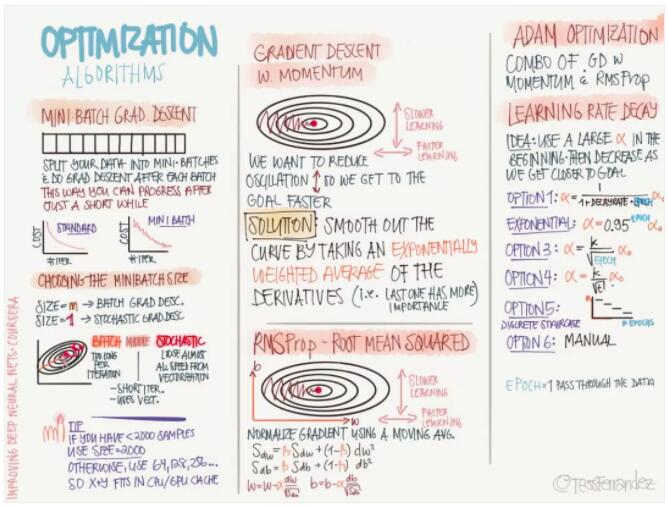 OPTIMIZATION
ALGORITHMS
MINI-BATCH GRAD. DESCENT
SPLIT YOUR DATA INTO MINI-BATCHES
& DO GRAD DESCENT AFTER EACH BATCH
THIS WAY YOU CAN PROGRESS AFTER
JUST A SHORT WHILE
STANDARD
COST
# ITER
MINI BATCH
COST
# ITER
CHOOSING THE MINIBATCH SIZE
SIZE=m → BATCH GRAD DESC.
SIZE=1 → STOCHASTIC GRAD DESC
BATCH
TOO LONG
PER
ITERATION
STOCHASTIC
LOOSE ALMOST
ALL SPEED FROM
VECTORIZATION
- SHORT ITER.
- USES VECT.
TIP
IF YOU HAVE <2000 SAMPLES
USE SIZE=2000
OTHERWISE, USE 64, 128, 256...
SO X+Y FITS IN CPU/GPU CACHE
IMPROVING DEEP NEURAL NETS · COURSERA
GRADIENT DESCENT
W. MOMENTUM
SLOWER
LEARNING
FASTER
LEARNING
WE WANT TO REDUCE
OSCILLATION ↕ SO WE GET TO THE
GOAL FASTER
SOLUTION: SMOOTH OUT THE
CURVE BY TAKING AN EXPONENTIALLY
WEIGHTED AVERAGE OF THE
DERIVATIVES (i.e. LAST ONE HAS MORE)
IMPORTANCE
RMSProp - ROOT MEAN SQUARED
b
W
SLOWER
LEARNING
FASTER
LEARNING
NORMALIZE GRADIENT USING A MOVING AVG.
Sdw = β Sdw + (1-β) dw²
Sdb = β Sdb + (1-β) db²
W=W-α dw/√Sdw b=b-α db/√Sdb
ADAM OPTIMIZATION
COMBO OF GD W
MOMENTUM & RMSProp
LEARNING RATE DECAY
IDEA: USE A LARGE α IN THE
BEGINNING. THEN DECREASE AS
WE GET CLOSER TO GOAL
OPTION 1: α = 1/(1+DECAYRATE·EPOCH) α₀
EXPONENTIAL: α = 0.95^EPOCH α₀
OPTION 3: α = k/√EPOCH α₀
OPTION 4: α = k/√t α₀
OPTION 5:
DISCRETE STAIRCASE
EPOCHS
OPTION 6: MANUAL
EPOCH = 1 PASS THROUGH THE DATA
@TessFernandez